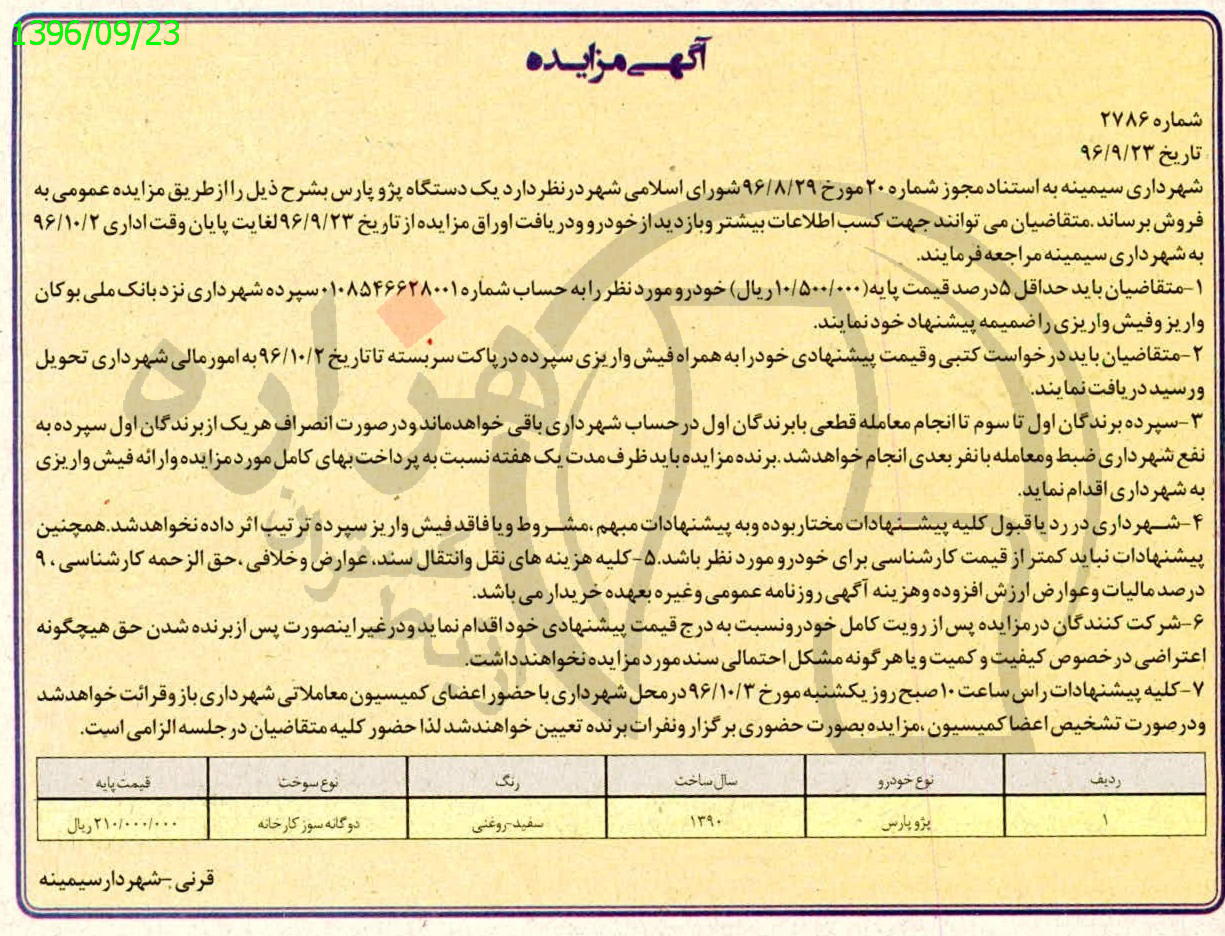 1396/09/23
آگهی مزایده
شماره ۲۷۸۶
تاریخ ۹۶/۹/۲۳
شهرداری سیمینه به استناد مجوز شماره ۲۰ مورخ ۹۶/۸/۲۹ شورای اسلامی شهر در نظر دارد یک دستگاه پژو پارس بشرح ذیل را از طریق مزایده عمومی به
فروش برساند. متقاضیان می توانند جهت کسب اطلاعات بیشتر وبازدید از خودرو ودریافت اوراق مزایده از تاریخ ۹۶/۹/۲۳ لغایت پایان وقت اداری ۹۶/۱۰/۲
به شهرداری سیمینه مراجعه فرمایند.
۱-متقاضیان باید حداقل ۵ درصد قیمت پایه (۱۰/۵۰۰/۰۰۰ ریال) خودرو مورد نظر را به حساب شماره ۰۱۰۸۵۴۶۶۲۸۰۰۱ سپرده شهرداری نزد بانک ملی بوکان
واریز وفیش واریزی را ضمیمه پیشنهاد خود نمایند.
۲-متقاضیان باید درخواست کتبی وقیمت پیشنهادی خود را به همراه فیش واریزی سپرده در پاکت سربسته تا تاریخ ۹۶/۱۰/۲ به امور مالی شهرداری تحویل
ورسید دریافت نمایند.
۳-سپرده برندگان اول تا سوم تا انجام معامله قطعی با برندگان اول در حساب شهرداری باقی خواهد ماند ودر صورت انصراف هر یک از برندگان اول سپرده به
نفع شهرداری ضبط ومعامله با نفر بعدی انجام خواهد شد .برنده مزایده باید ظرف مدت یک هفته نسبت به پرداخت بهای کامل مورد مزایده وارائه فیش واریزی
به شهرداری اقدام نماید.
۴-شهرداری در رد یا قبول کلیه پیشنهادات مختار بوده وبه پیشنهادات مبهم ،مشروط ویا فاقد فیش واریز سپرده ترتیب اثر داده نخواهد شد.همچنین
پیشنهادات نباید کمتر از قیمت کارشناسی برای خودرو مورد نظر باشد.۵-کلیه هزینه های نقل وانتقال سند، عوارض وخلافی ،حق الزحمه کارشناسی ، ۹
درصد مالیات وعوارض ارزش افزوده وهزینه آگهی روزنامه عمومی وغیره بعهده خریدار می باشد.
۶-شرکت کنندگان در مزایده پس از رویت کامل خودرو نسبت به درج قیمت پیشنهادی خود اقدام نماید ودر غیر اینصورت پس از برنده شدن حق هیچگونه
اعتراضی در خصوص کیفیت و کمیت ویا هر گونه مشکل احتمالی سند مورد مزایده نخواهند داشت.
۷-کلیه پیشنهادات راس ساعت ۱۰ صبح روز یکشنبه مورخ ۹۶/۱۰/۳ در محل شهرداری با حضور اعضای کمیسیون معاملاتی شهرداری باز وقرائت خواهد شد
ودر صورت تشخیص اعضا کمیسیون ،مزایده بصورت حضوری برگزار ونفرات برنده تعیین خواهند شد لذا حضور کلیه متقاضیان در جلسه الزامی است.
ردیف نوع خودرو سال ساخت رنگ نوع سوخت قیمت پایه
۱ پژو پارس ۱۳۹۰ سفید-روغنی دوگانه سوز کارخانه ۲۱۰/۰۰۰/۰۰۰ ریال
قرنی -شهردار سیمینه
هزاره